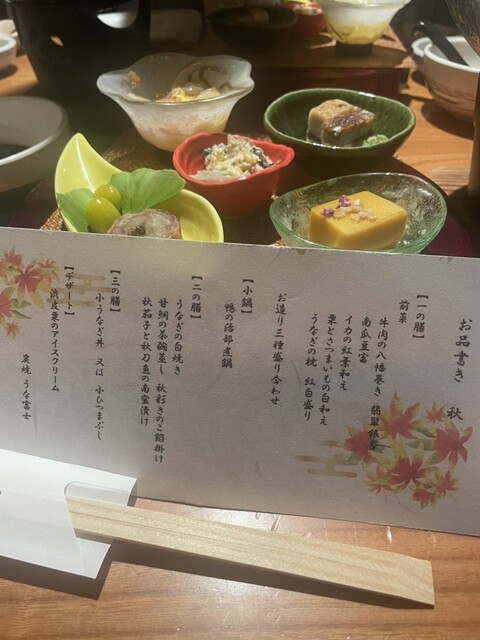 お品書き 秋
【一の膳】
前菜
牛肉の八幡巻き 翡翠銀杏
南瓜豆富
イカの紅葉和え
栗とさつまいもの白和え
うなぎの枕 紅白盛り
お造り三種盛り合わせ
【小鍋】
鴨の治部煮鍋
【二の膳】
うなぎの白焼き
甘鯛の茶碗蒸し 秋彩きのこ餡掛け
秋茄子と秋刀魚の南蛮漬け
【三の膳】
小うなぎ丼 又は 小ひつまぶし
【デザート】
渋皮栗のアイスクリーム
炭焼 うな富士